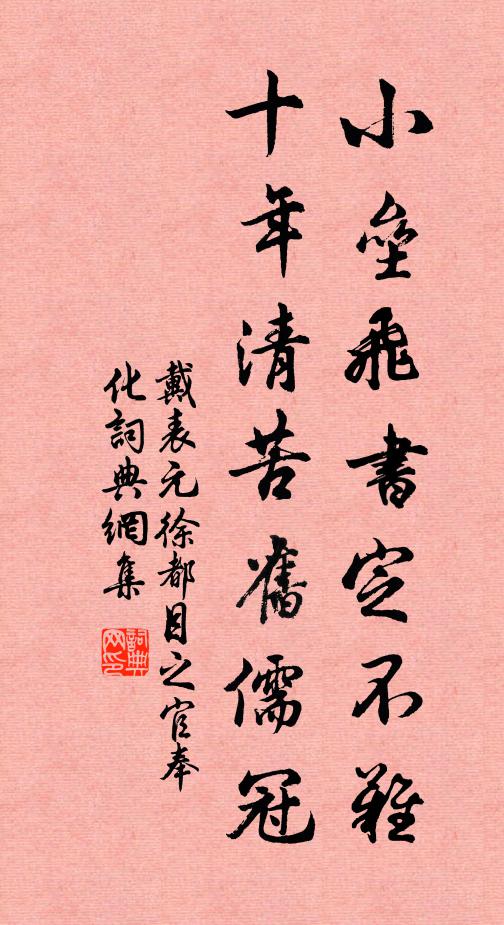 小壘飛書定不難
十年清苦舊儒冠
戴表元徐都目之官奉
化詞典網集
詞典
网印